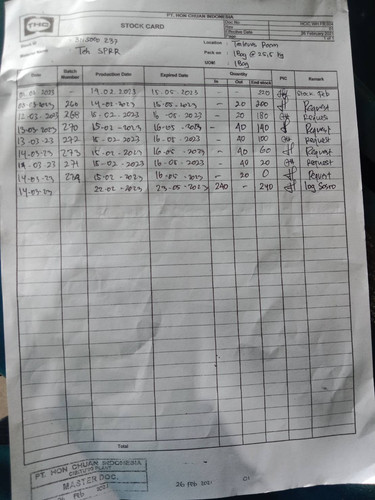 PT. HON CHUAN INDONESIA
THC
STOCK CARD
Doc No.
Rev No.
Effective Date
Page
Location : Timbang Room
Teh SPRR
Pack on : 1 Bag @ 25,5 kg
UOM : 1 Bag
Date Batch Number Production Date Expired Date Quantity In Out End stock PIC Remark
19.02.2023 - - 220 Stock Feb
03-03-2023 14-02-2023 15-05-2023 - 20 200 Request
15-02-2023 16-05-2023 - 20 180 Request
13-03-2023 270 15-02-2023 16-05-2023 - 40 140 Request
13-03-23 272 15-02-2023 16-05-2023 - 40 100 Request
14-03-23 273 15-02-2023 16-05-2023 - 40 60 Request
14 03 23 274 15-02-2023 16-05-2023 - 40 20 Request
14-03-23 15-02-2023 16-05-2023 - 20 0 Request
14-03-23 22-02-2023 23-05-2023 240 - 240 log Sosro
Total
PT. HON CHUAN INDONESIA
MASTER DOC.
26 Feb 2021 01